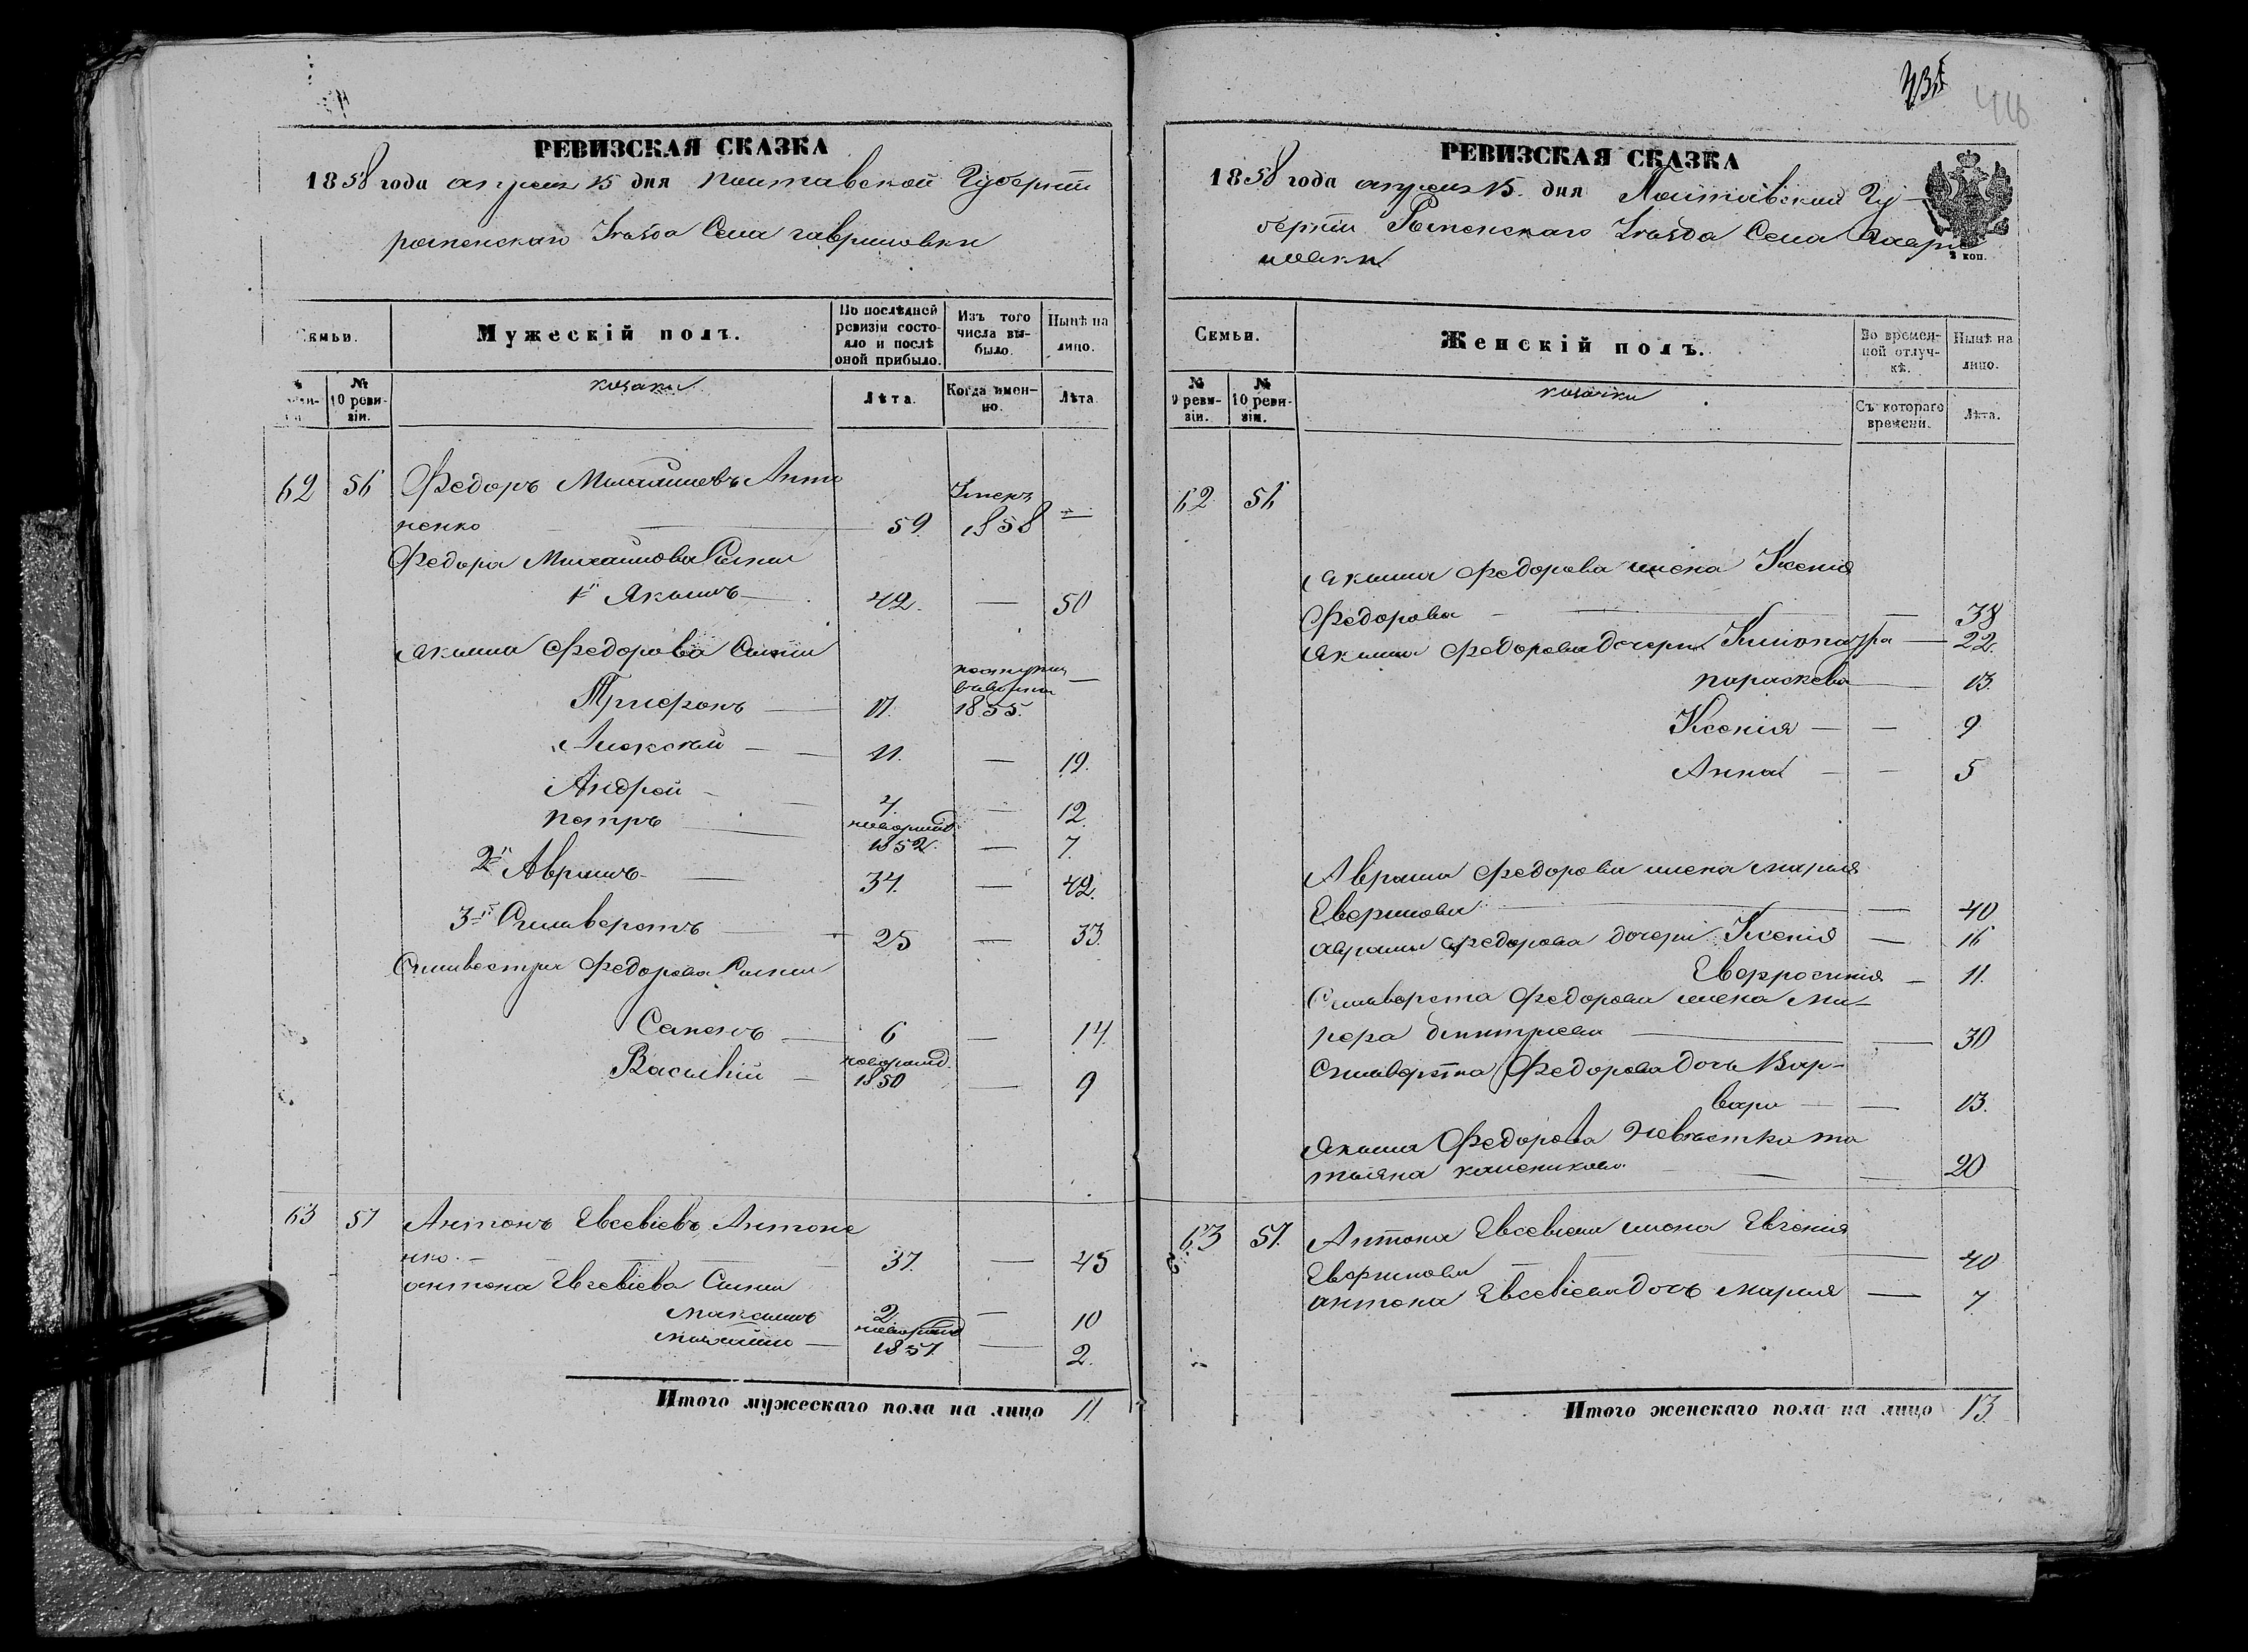 РЕВИЗСКАЯ СКАЗКА
1858 года апреля 15 дня Полтавской Губерніи
роменскаго Уѣзда Села гавриловки
Семьи.
Мужескій полъ.
По послѣдней ревизіи состояло и послѣ оной прибыло.
Изъ того числа выбыло.
Нынѣ на лицо.
№ 10 ревизіи.
козаки
Лѣта.
Когда именно.
Лѣта
62 56 Федоръ Михайловъ Анто
ненко 59. Умеръ 1858 =
Федора Михайлова Сыны
1й Якимъ 42. — 50
Якима Федорова Сыны
Трифонъ 17. 1855. —
Алексѣй 11. — 19.
Андрей 4. — 12.
петръ новорожд. 1852. — 7.
2й Аврамъ 34. — 42.
3й Силиверстъ 25 — 33.
Силивестра Федорова Сыны
Семенъ 6 — 14.
Василій новорожд. 1850 — 9
63 57 Антонъ Евсевіевъ Антоне
нко. 37. — 45
антона Евсевіева Сыны
Максимъ 2. — 10
Михайло новорожд 1857. — 2.
Итого мужескаго пола на лицо 11.
446
РЕВИЗСКАЯ СКАЗКА
1858 года апреля 15. дня Полтавской Гу
берніи Роменскаго Уѣзда Села Гаври
ловки
коп.
Семьи.
Женскій полъ.
Во временной отлучкѣ.
Нынѣ на лицо.
№ 9 ревизіи.
№ 10 ревизіи.
козачки
Съ котораго времени.
Лѣта.
62 56
Якима Федорова жена Ксенія
Федорова — 38
Якима Федорова дочери Клиопатра — 22.
параскева 13.
Ксенія — — 9
Анна — — 5
Аврама Федорова жена марія
Евфимова — 40
аврама федорова дочери Ксенія — 16
Евфросинія — 11.
Силиверста Федорова жена Ми-
нера дмитріева — 30
Силиверста Федорова дочь Вар-
вара — — 13.
Якима Федорова Невѣстка та
тьяна — 20
63 57. Антона Евсевіева жена Евгенія
Евфимова — 40
антона Евсевіева дочь марія — 7.
Итого женскаго пола на лицо 13